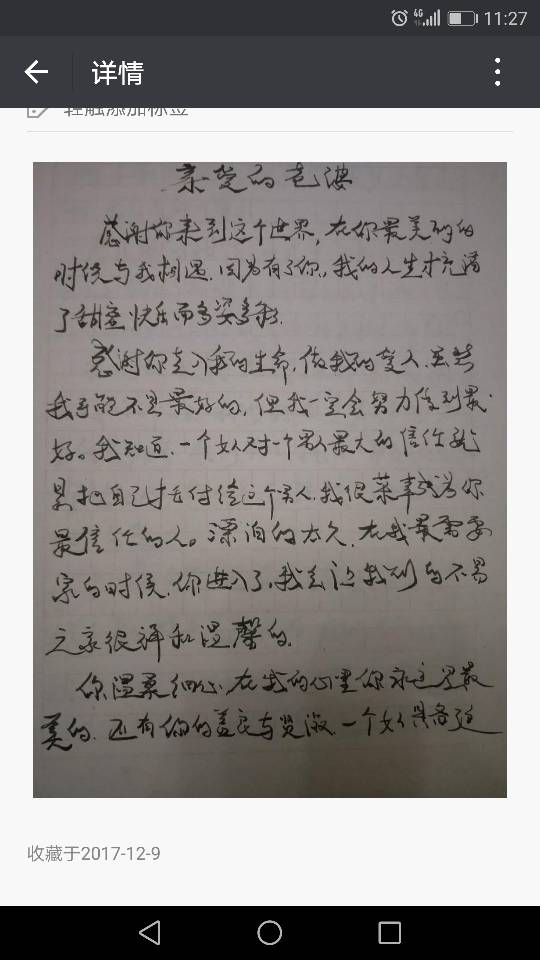 11:27
4G
详情
轻触添加标签
亲爱的老婆
感谢你来到这个世界,在你最美的
时候与我相遇.因为有了你,我的人生才充满
了甜蜜快乐而多姿多彩.
感谢你走入我的生命,做我的爱人.虽然
我可能不是最好的,但我一定会努力做到最
好。我知道,一个女人对一个男人最大的信任就
是把自己托付给这个男人.我很荣幸成为你
最信任的人。漂泊的太久,在我最需要
家的时候,你进入了,我
家很和温馨的,
你温柔细心.在我的心里你永远是最
美的.还有你的善良与贤淑.一个女人具备这
收藏于2017-12-9